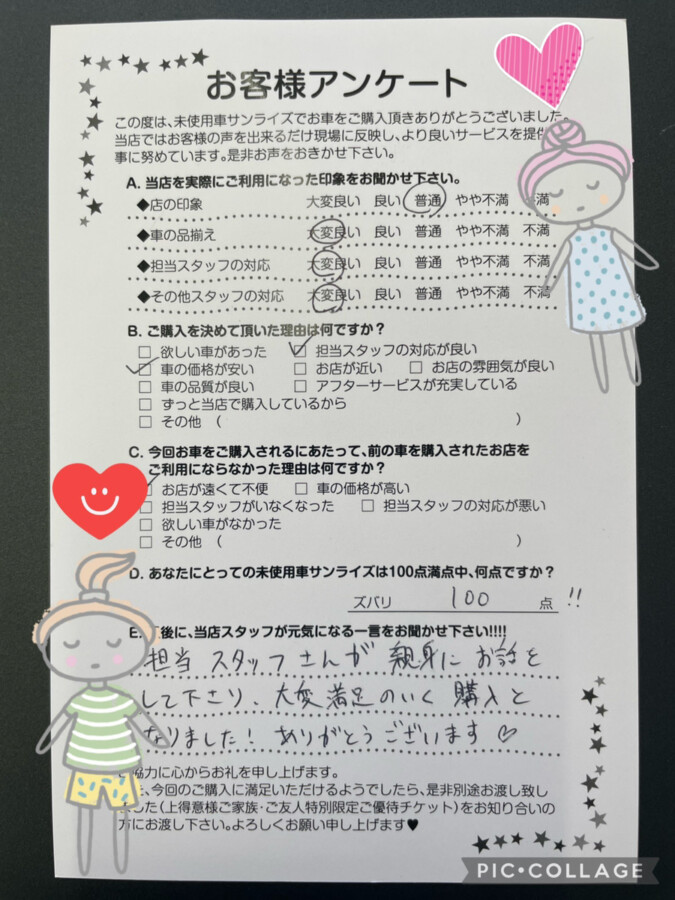 お客様アンケート
この度は、未使用車サンライズでお車をご購入頂きありがとうございました。
当店ではお客様の声を出来るだけ現場に反映し、より良いサービスを提供
事に努めています。是非お声をおきかせ下さい。
A. 当店を実際にご利用になった印象をお聞かせ下さい。
◆店の印象 大変良い 良い 普通 やや不満 不満
◆車の品揃え 大変良い 良い 普通 やや不満 不満
◆担当スタッフの対応 大変良い 良い 普通 やや不満 不満
◆その他スタッフの対応 大変良い 良い 普通 やや不満 不満
B. ご購入を決めて頂いた理由は何ですか?
□ 欲しい車があった □ 担当スタッフの対応が良い
□ 車の価格が安い □ お店が近い □ お店の雰囲気が良い
□ 車の品質が良い □ アフターサービスが充実している
□ ずっと当店で購入しているから
□ その他 ( )
C. 今回お車をご購入されるにあたって、前の車を購入されたお店を
ご利用にならなかった理由は何ですか?
お店が遠くて不便 □ 車の価格が高い
□ 担当スタッフがいなくなった □ 担当スタッフの対応が悪い
□ 欲しい車がなかった
□ その他 ( )
D. あなたにとっての未使用車サンライズは100点満点中、何点ですか?
ズバリ 100 点 !!
E. 後に、当店スタッフが元気になる一言をお聞かせ下さい!!!!
担当スタッフさんが親身にお話を
して下さり、大変満足のいく購入と
なりました! ありがとうございます♡
協力に心からお礼を申し上げます。
、今回のご購入に満足いただけるようでしたら、是非別途お渡し致し
した(上得意様ご家族・ご友人特別限定ご優待チケット)をお知り合いの
方にお渡し下さい。よろしくお願い申し上げます♥
PIC•COLLAGE